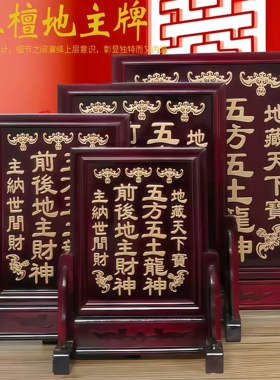 檀地主牌
计，细节之间演绎上层意识，彰显独特而又
地藏天下寶
五方五土龍神
前後地主財神
主納世間財
前後地主財神
主納世間財
地
五
地藏天下寶
五方五土龍神